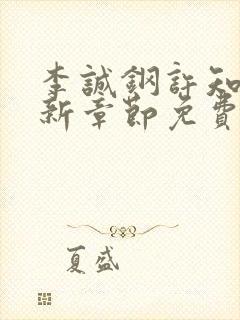 李誠鋼許知
新章節免費
夏盛